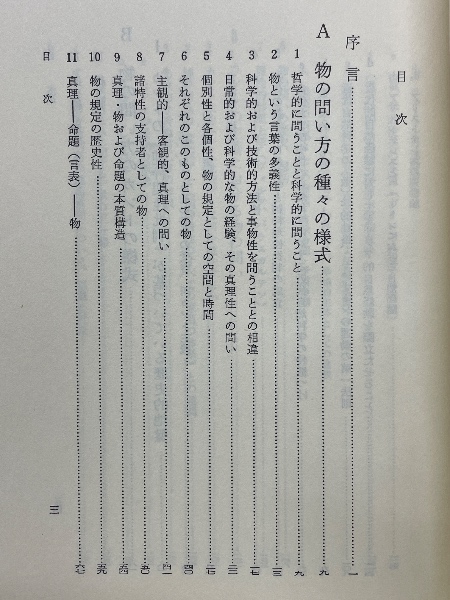 目次
序言……一
A 物の問い方の種々の様式……九
1 哲学的に問うことと科学的に問うこと……九
2 物という言葉の多義性……一三
3 科学的および技術的方法と事物性を問うこととの相違……一七
4 日常的および科学的な物の経験、その真理性への問い……二三
5 個別性と各個性、物の規定としての空間と時間……二七
6 それぞれのこのものとしての物……四〇
7 主観的――客観的、真理への問い……四一
8 諸特性の支持者としての物……五〇
9 真理・物および命題の本質構造……五四
10 物の規定の歴史性……五九
11 真理――命題（言表）――物……六七
目次
三